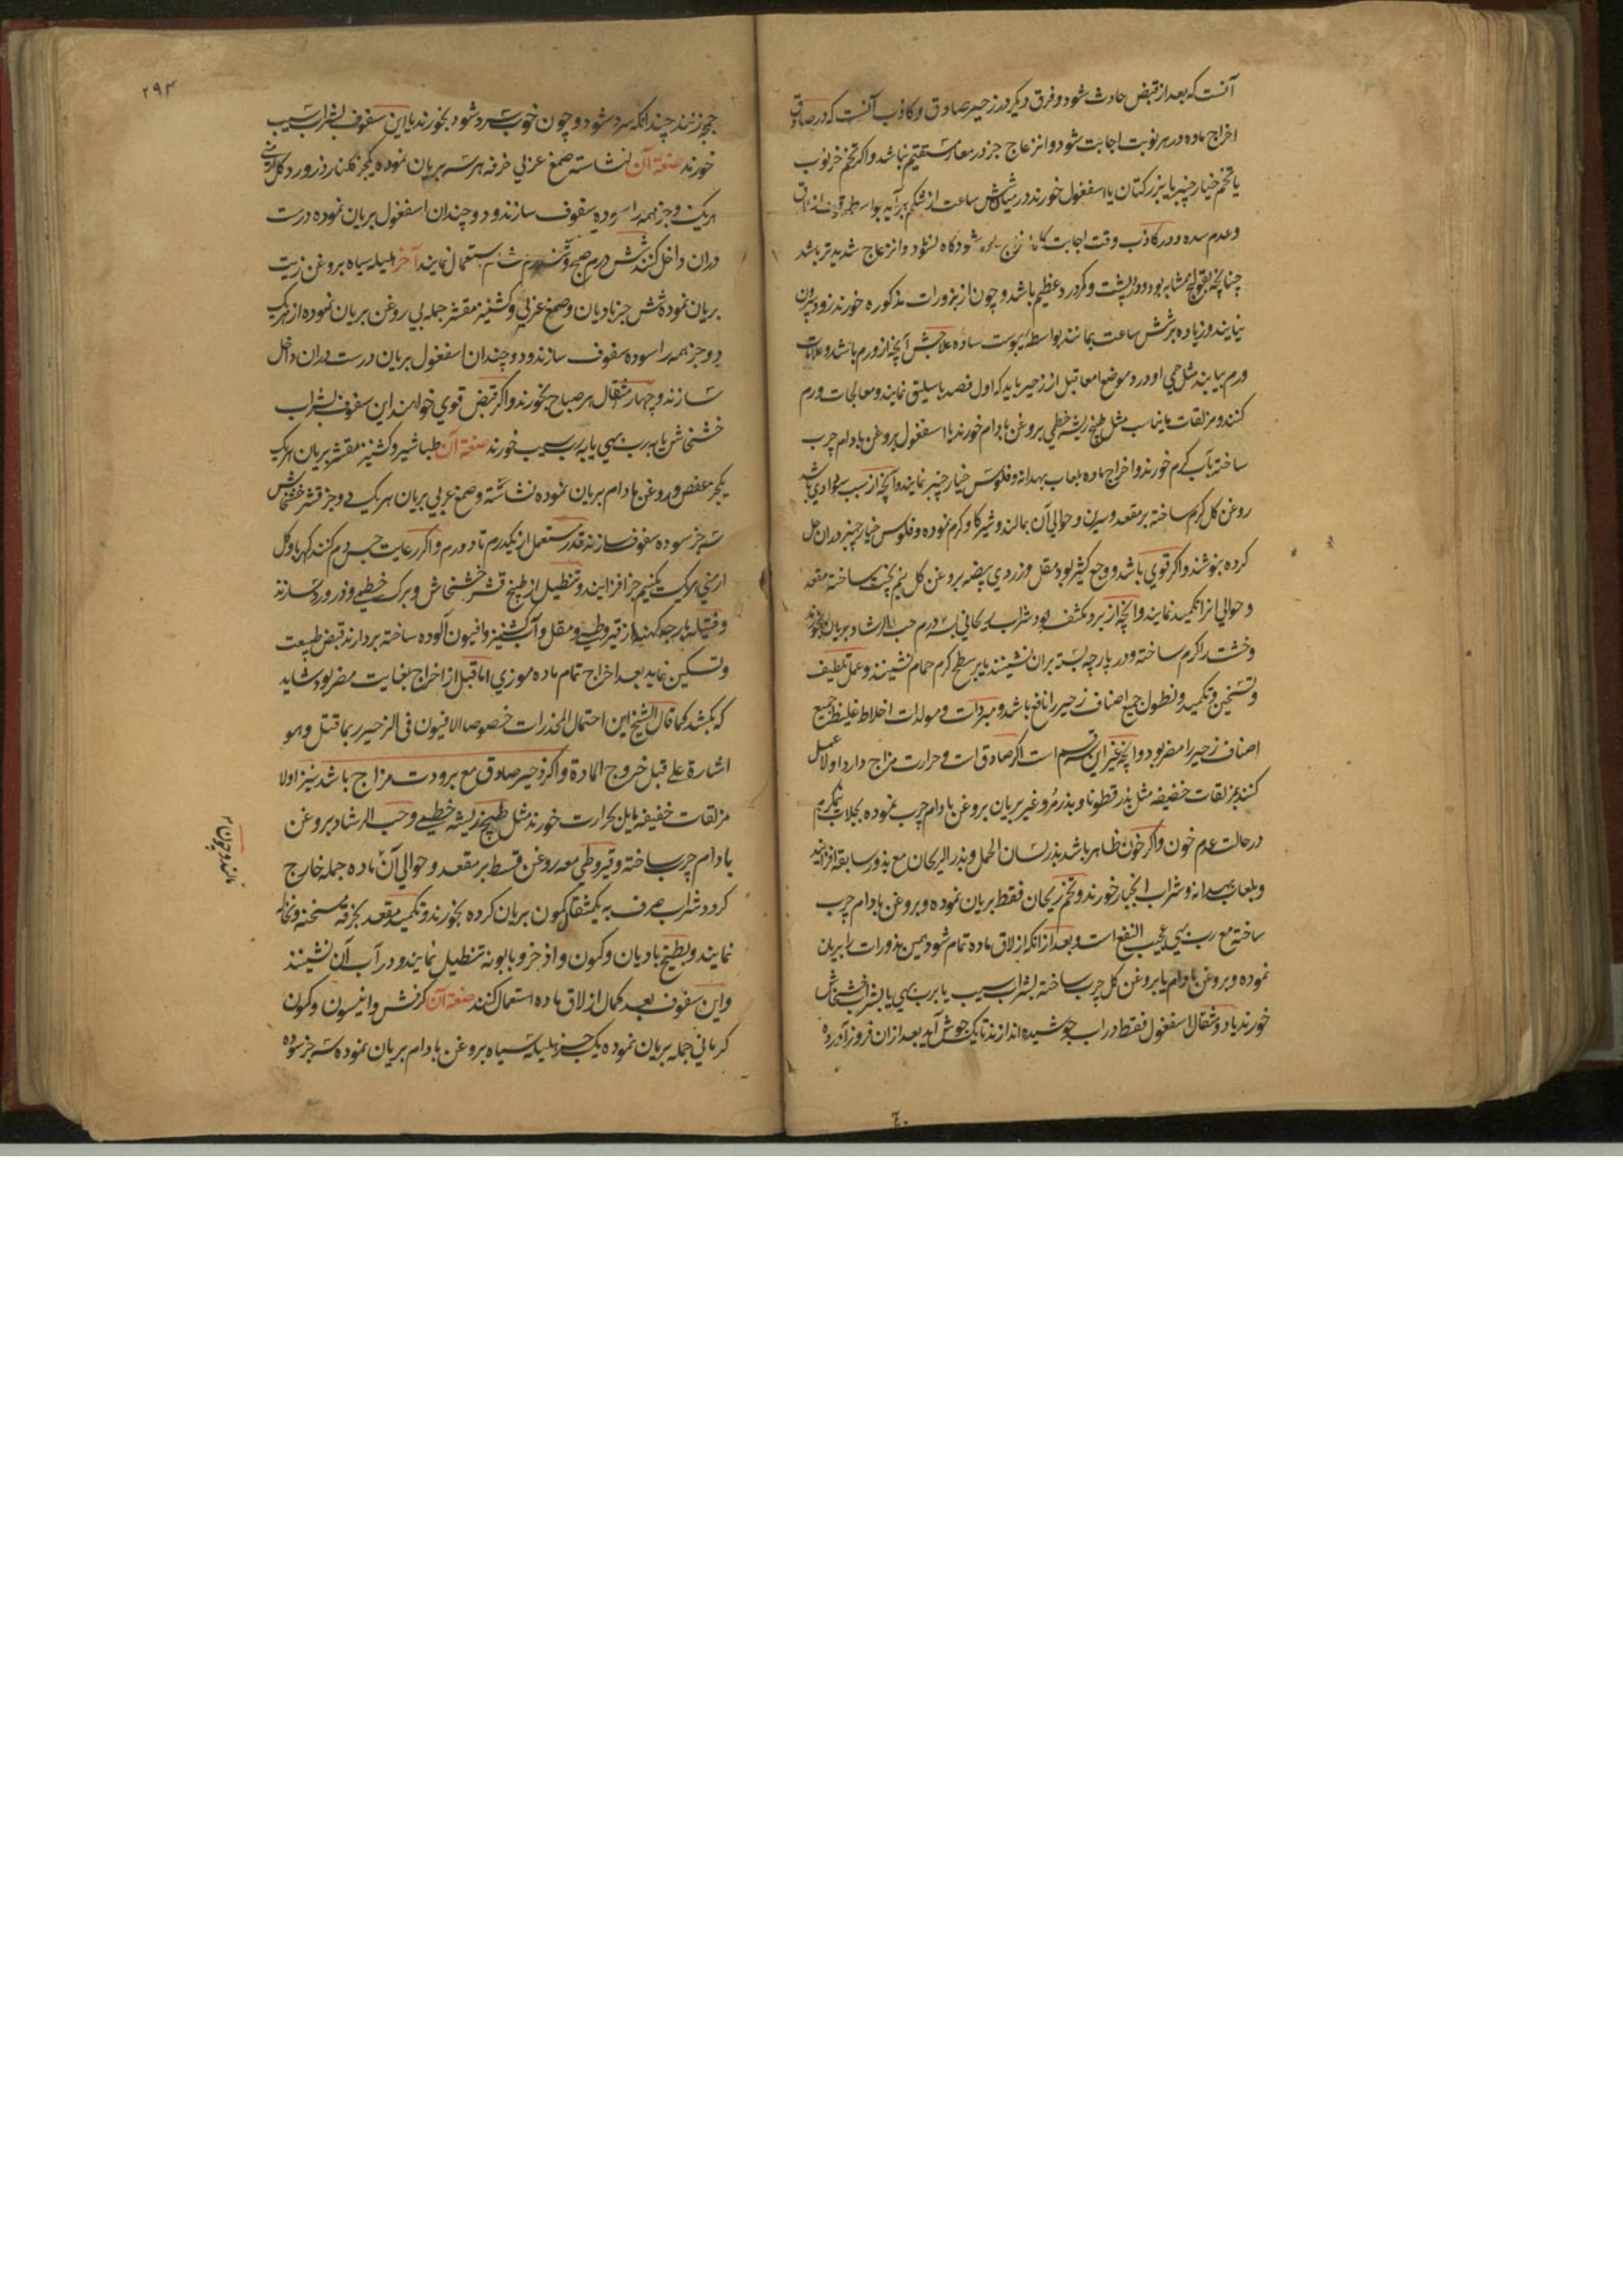 آنست که بعد از قبض حادث شود و فرق دیکر در زحیر صادق و کاذب آنست که در صادق
اخراج ماده در هر نوبت اجابت شود و انزعاج جز در معار مستقیم نباشد و اکر تخم خرنوب
یا تخم خیارچنبر یا بزرکتان یا اسفغول خورند در میان شش ساعت از شکم برآید بواسطه
و عدم سده و در کاذب وقت اجابت کاه شود کاه نشود و انزعاج شدیدتر باشد
چنانچه بقولنج مشابه بود و در پشت و کمر درد عظیم باشد و چون از بزورات مذکوره خورند زود بیرون
نیایند و زیاده بر شش ساعت بمانند بواسطه یبوست ساده علاجش آنچه از ورم باشد و علامات
ورم بیابند مثل حمی و درد موضع امعا قبل از زحیر باید که اول فصد باسلیق نمایند و معالجات ورم
کنند و مزلقات مایناسب مثل طبخ ریشه خطمی بروغن بادام خورند یا اسفغول بروغن بادام چرب
ساخته بآب کرم خورند و اخراج ماده بلعاب بهدانه و فلوس خیارچنبر نمایند و آنچه از سبب سوداوی باشد
روغن کل کرم ساخته بر مقعد و سرین و حوالی آن بمالند و شیر کاو کرم نموده و فلوس خیارچنبر دران حل
کرده بنوشند و اکر قوی باشد و وجع کثیر بود مقل و زردی بیضه بروغن کل نیم پخت ساخته مقعد
و حوالی انرا تکمید نمایند و آنچه از برد مکشف بود شراب ریحانی بسه درم حب الرشاد بریان بخورند
و خشت را کرم ساخته و در پارچه بسته بران نشینند یا بر سطح کرم حمام نشینند و عمل تلطیف
و تسخین و تکمید و نطول جمیع اصناف زحیر را نافع باشد و مبردات و مولدات اخلاط غلیظ جمیع
اصناف زحیر را مضر بود و آنچه غیر این قسم است اکر صادق است و حرارت مزاج دارد اولا عمل
کنند بمزلقات خفیفه مثل بذر قطونا و بذر مرو غیر بریان بروغن بادام چرب نموده بجلاب نیمکرم
در حالت عدم خون و اکر خون ظاهر باشد بذر لسان الحمل و بذر الریحان مع بذور سابقه افزایند
و بلعاب بهدانه و شراب انجبار خورند و تخم ریحان فقط بریان نموده و بروغن بادام چرب
ساخته مع رب بهی عجیب النفع است و بعد از انکه ازلاق ماده تمام شود همین بذورات را بریان
نموده و بروغن بادام یا بروغن کل چرب ساخته بشراب سیب یا برب بهی یا بشراب خشخاش
خورند یا دو مثقال اسفغول فقط در اب جوشیده اندازند تا یک جوش آید بعد ازان فروز آورده
۲۹۴
جمچه زنند چندانکه سرد شود و چون خوب سرد شود بخورند یا این سفوف بشراب سیب
خورند صنعة آن نشاسته صمغ عربی خرفه هر سه بریان نموده یکجز کلنار ذرورد کل ارمنی
هریک دو جز همه را سوده سفوف سازند و دو چندان اسفغول بریان نموده درست
دران داخل کنند شش درم صبح و شش درم شام استعمال نمایند آخر هلیله سیاه بروغن زیت
بریان نموده شش جز بادیان و صمغ عربی و کشنیز مقشر جمله بی روغن بریان نموده از هریک
دو جز همه را سوده سفوف سازند و دو چندان اسفغول بریان درست دران داخل
سازند و چهار مثقال هر صباح بخورند و اکر قبض قوی خواهند این سفوف بشراب
خشخاش یا برب بهی یا به رب سیب خورند صنعة آن طباشیر و کشنیز مقشر بریان هریک
یکجز عفص در روغن بادام بریان نموده نشاسته و صمغ عربی بریان هریک دو جز قشر خشخاش
سه جز سوده سفوف سازند قدر مستعمل از یکدرم تا دو درم و اکر رعایت حبس دم کنند کهربا و کل
ارمنی هریک یکنیم جز افزایند و تنطیل از طبخ قشر خشخاش و برک خطمی و ذرورد سازند
و فتیله پارچه کهنه از قیروطی و مقل و آب کشنیز و افیون آلوده ساخته بردارند قبض طبیعت
و تسکین نماید بعد اخراج تمام ماده موزی اما قبل از اخراج بغایت مضر بود شاید
که بکشد کما قال الشیخ این احتمال المخدرات خصوصا الافیون فی الزحیر ربما قتل و هو
اشارة علی قبل خروج المادة و اکر زحیر صادق مع برودت مزاج باشد نیز اولا
مزلقات خفیفه مایل بحرارت خورند مثل طبخ ریشه خطمی و حب الرشاد بروغن
بادام چرب ساخته و قیروطی معه روغن قسط بر مقعد و حوالی آن ماده جمله خارج
کردد شراب صرف به یکمثقال کمون بریان کرده بخورند و تکمید مقعد بخرقه مسخنه و نخاله
نمایند و بطبخ بادیان و کمون و اذخر و بابونه تنطیل نمایند و در آب آن نشینند
و این سفوف بعد کمال ازلاق ماده استعمال کنند صنعة آن کرفس و انیسون و کمون
کرمانی جمله بریان نموده یک جز هلیله سیاه بروغن بادام بریان نموده سه جز سوده
مالند و چون